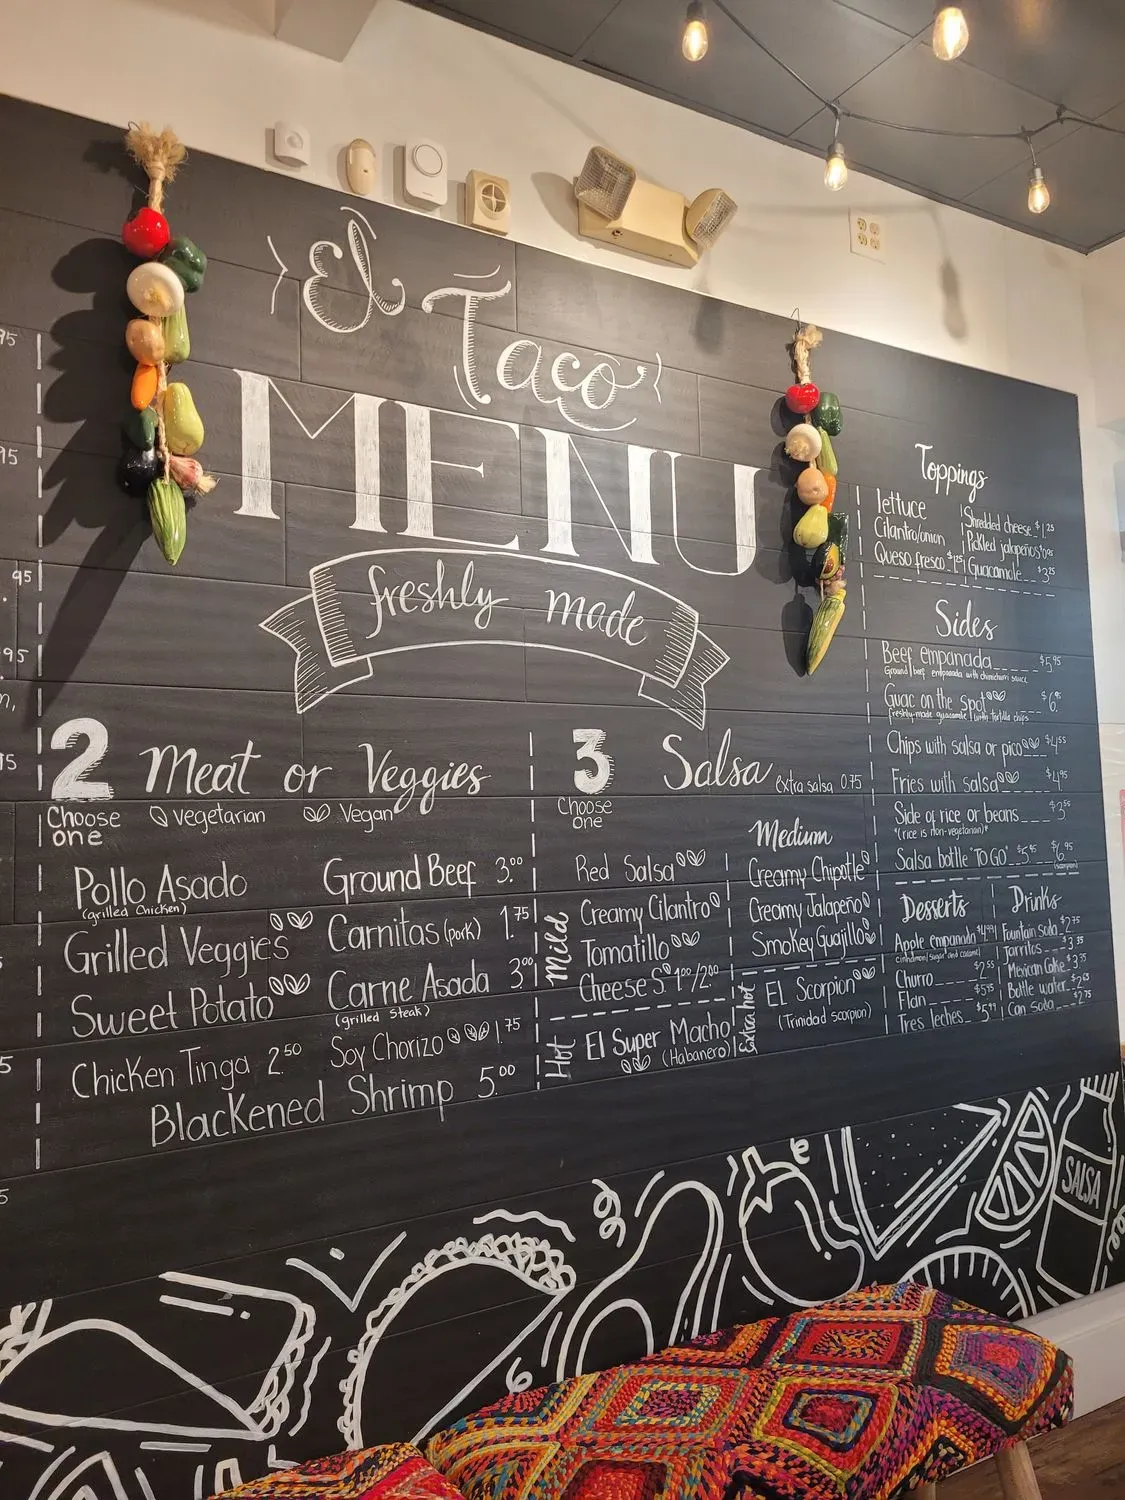 El
Taco
MENU
freshly made
95
95
95
95
2 Meat or Veggies
Choose one
Vegetarian
Vegan
Pollo Asado
(grilled chicken)
Grilled Veggies
Sweet Potato
Chicken Tinga 2.50
Ground Beef 3.00
Carnitas (pork) 1.75
Carne Asada 3.00
(grilled steak)
Soy Chorizo 1.75
Blackened Shrimp 5.00
3 Salsa extra salsa 0.75
Choose one
Mild
Red Salsa
Creamy Cilantro
Tomatillo
Cheese S 1.00/2.00
Medium
Creamy Chipotle
Creamy Jalapeño
Smokey Guajillo
Hot
El Super Macho
(Habanero)
Extra hot
El Scorpion
(Trinidad scorpion)
Toppings
lettuce
Cilantro/onion
Queso fresco $1.25
Shredded cheese $1.25
Pickled jalapeños
Guacamole $3.25
Sides
Beef empanada $5.95
Ground beef empanada with chimichurri sauce
Guac on the spot $6.
freshly-made guacamole with tortilla chips
Chips with salsa or pico
Fries with salsa $4.95
Side of rice or beans
*(rice is non-vegetarian)*
Salsa bottle "TO GO" $5.95 $6.95
(scorpion)
Desserts
Apple empanada
cinnamon/sugar and caramel
Churro
Flan $5.95
Tres leches
Drinks
Fountain soda $2.75
Jarritos
Mexican Coke
Bottle water
Can soda $2.75
SALSA